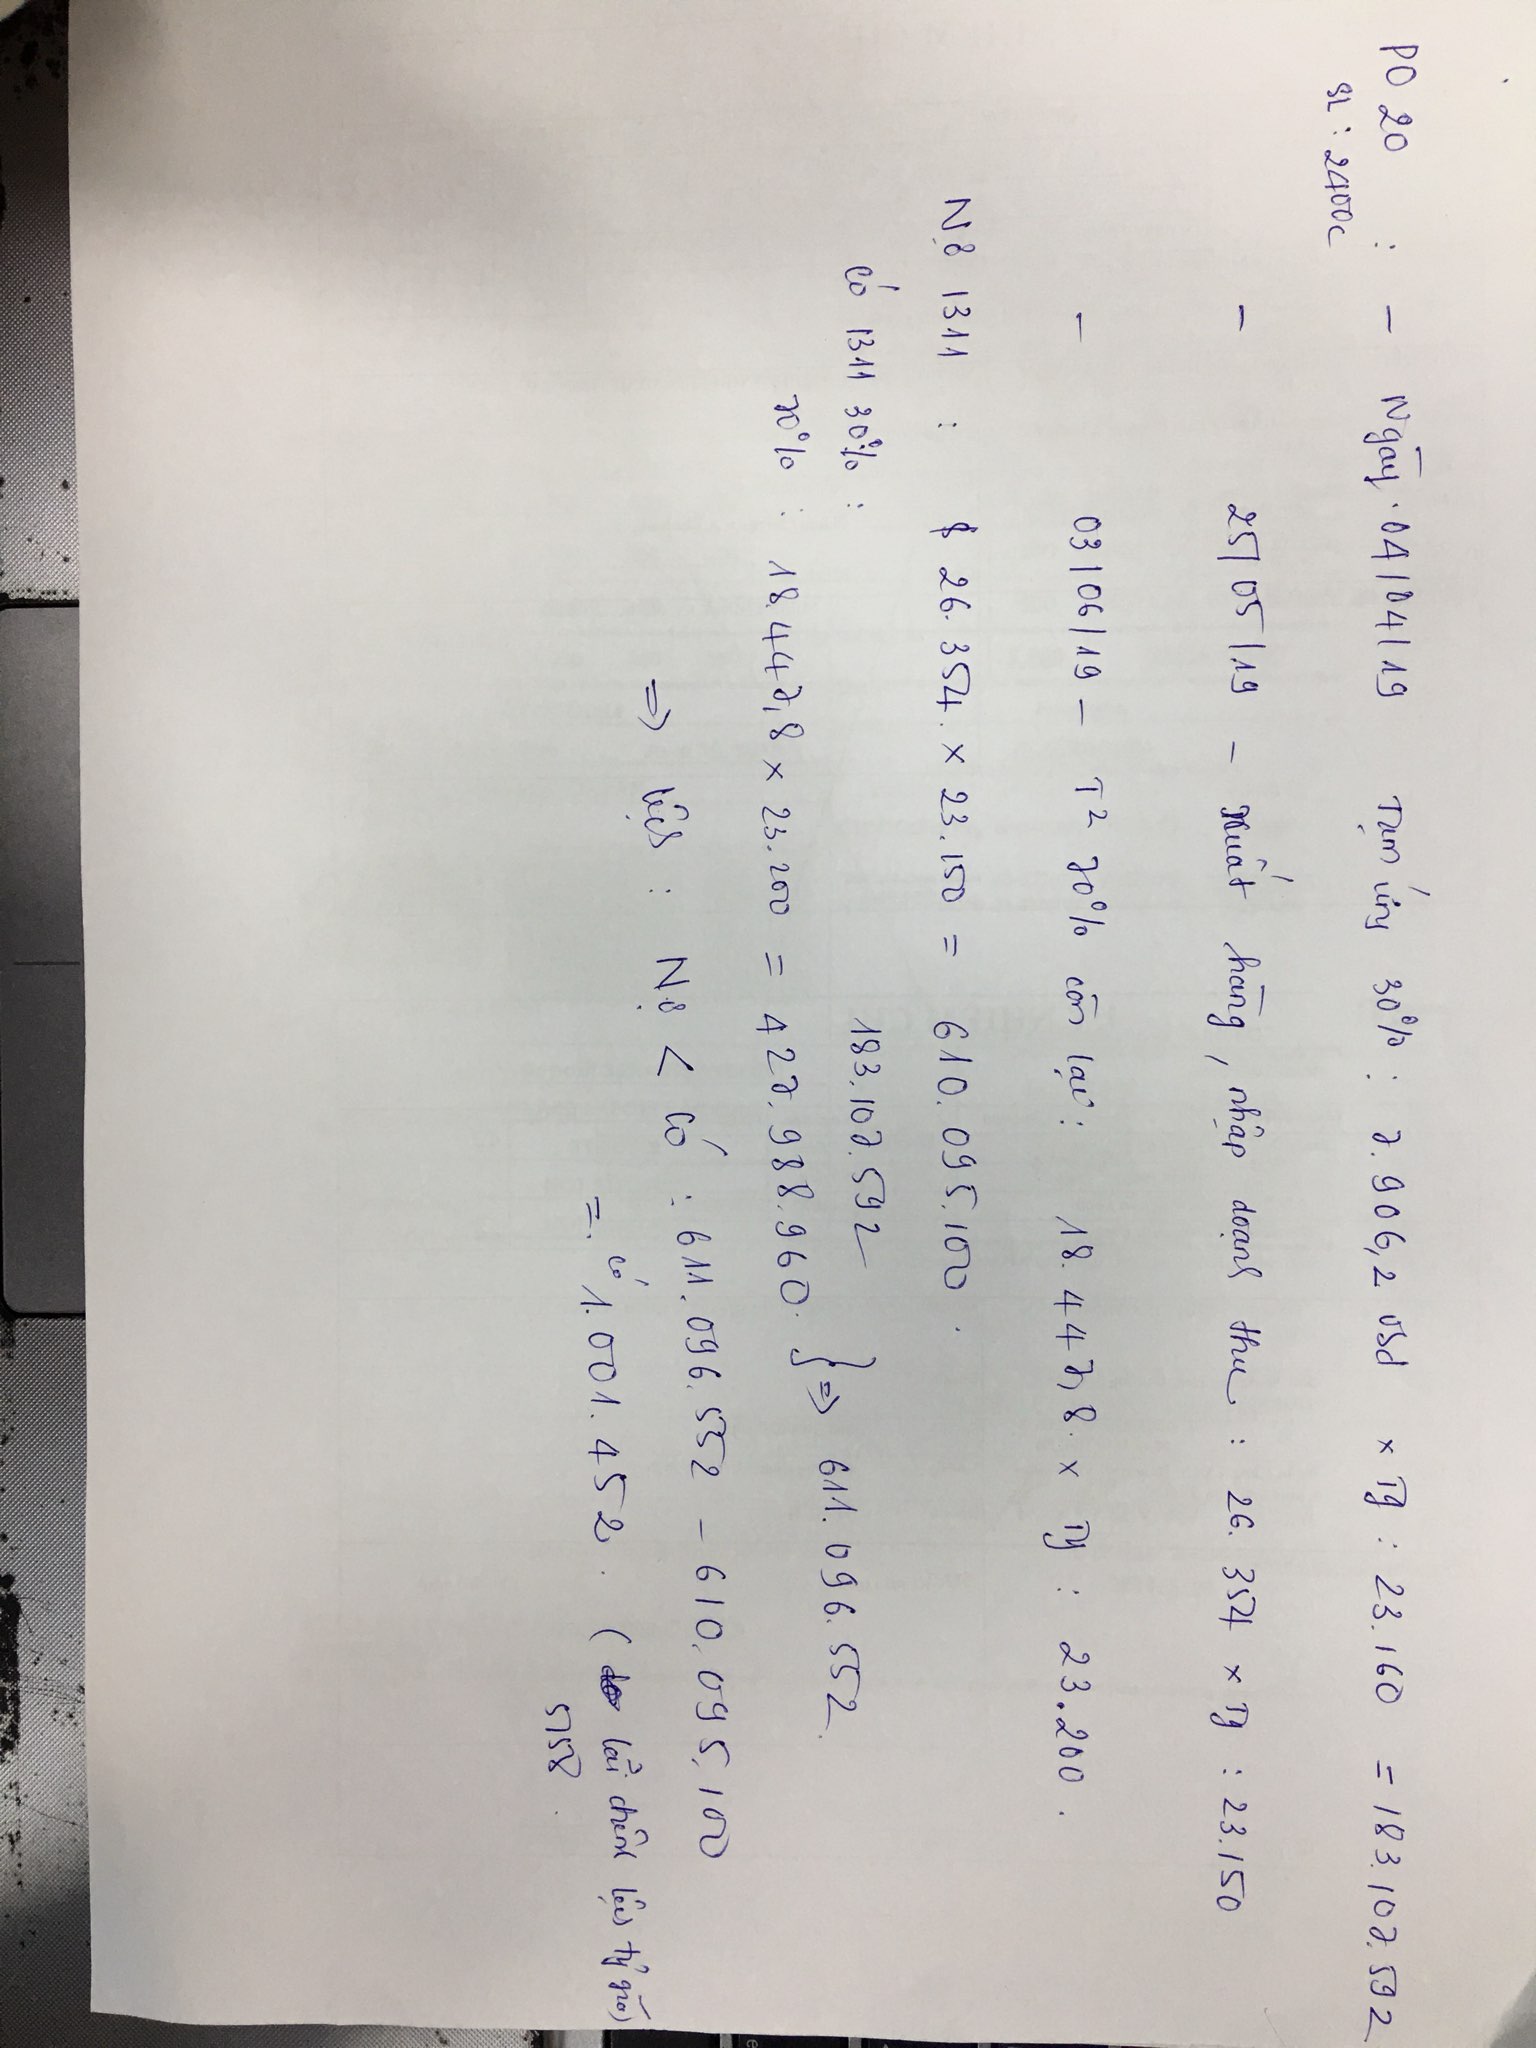 PO 20 : - Ngày 04/04/19 Tạm ứng 30% : 7.906,2 usd x Tg : 23.160 = 183.107.592
SL : 2400c
- 25/05/19 - Xuất hàng, nhập doanh thu : 26.354 x Tg : 23.150
- 03/06/19 - T2 70% còn lại : 18.447,8 x Tg : 23.200.
Nợ 1311 : $ 26.354. x 23.150 = 610.095.100.
Có 1311 30% : 183.107.592
70% : 18.447,8 x 23.200 = 427.988.960. } => 611.096.552
=> lệch : Nợ < Có : 611.096.552 - 610.095.100
= Có 1.001.452. ( lãi chênh lệch tỷ giá)
5158.